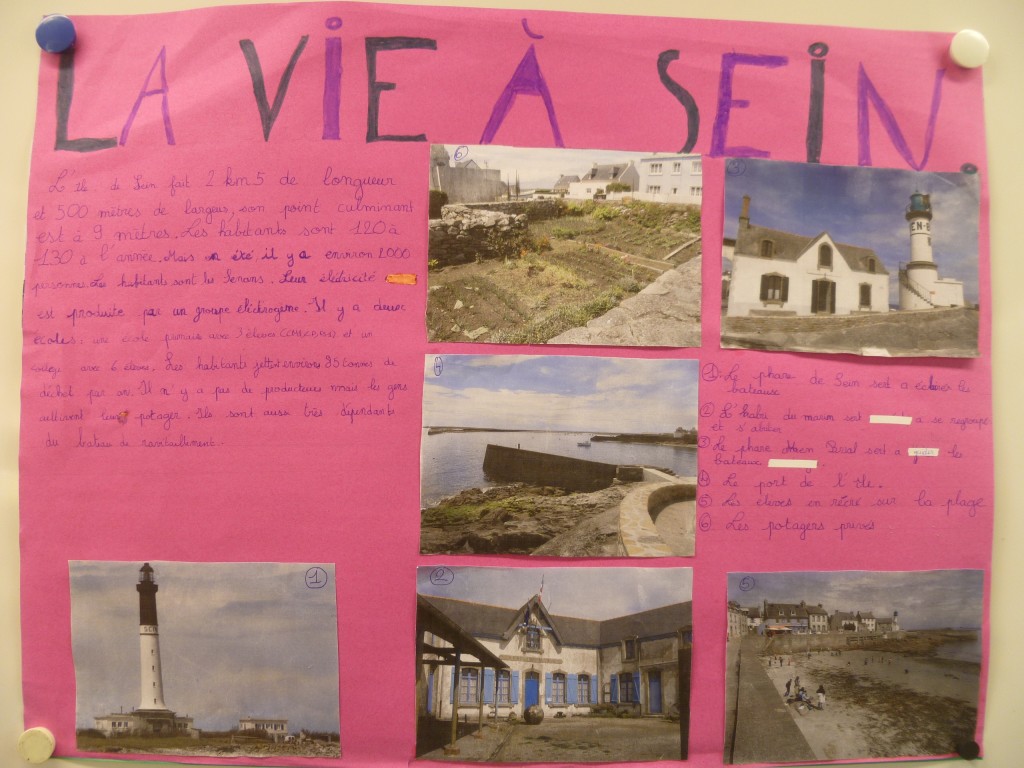 LA VIE À SEIN.
L'île de Sein fait 2 km5 de longueur
et 500 mètres de largeur, son point culminant
est à 9 mètres. Les habitants sont 120 à
130 à l'année. Mais en été il y a environ 2000
personnes. Les habitants sont les Senans. Leur éléctricité
est produite par un groupe éléctrogène. Il y a deux
écoles: une école primaire avec 3 élèves et un
collège avec 6 élèves. Les habitants jettent environs 35 tonnes de
déchet par an. Il n'y a pas de producteurs mais les gens
cultivent leur potager. Ils sont aussi très dépendants
du bateau de ravitaillement.
6
3
EN-B
4
① Le phare de Sein sert a éclairer les
bateaux
② L'habri de marin sert a se regrouper
et s'abriter
③ Le phare sert a guider les
bateaux
④ Le port de l'île.
⑤ Les élèves en récré sur la plage
⑥ Les potagers privés
1
SEIN
2
5